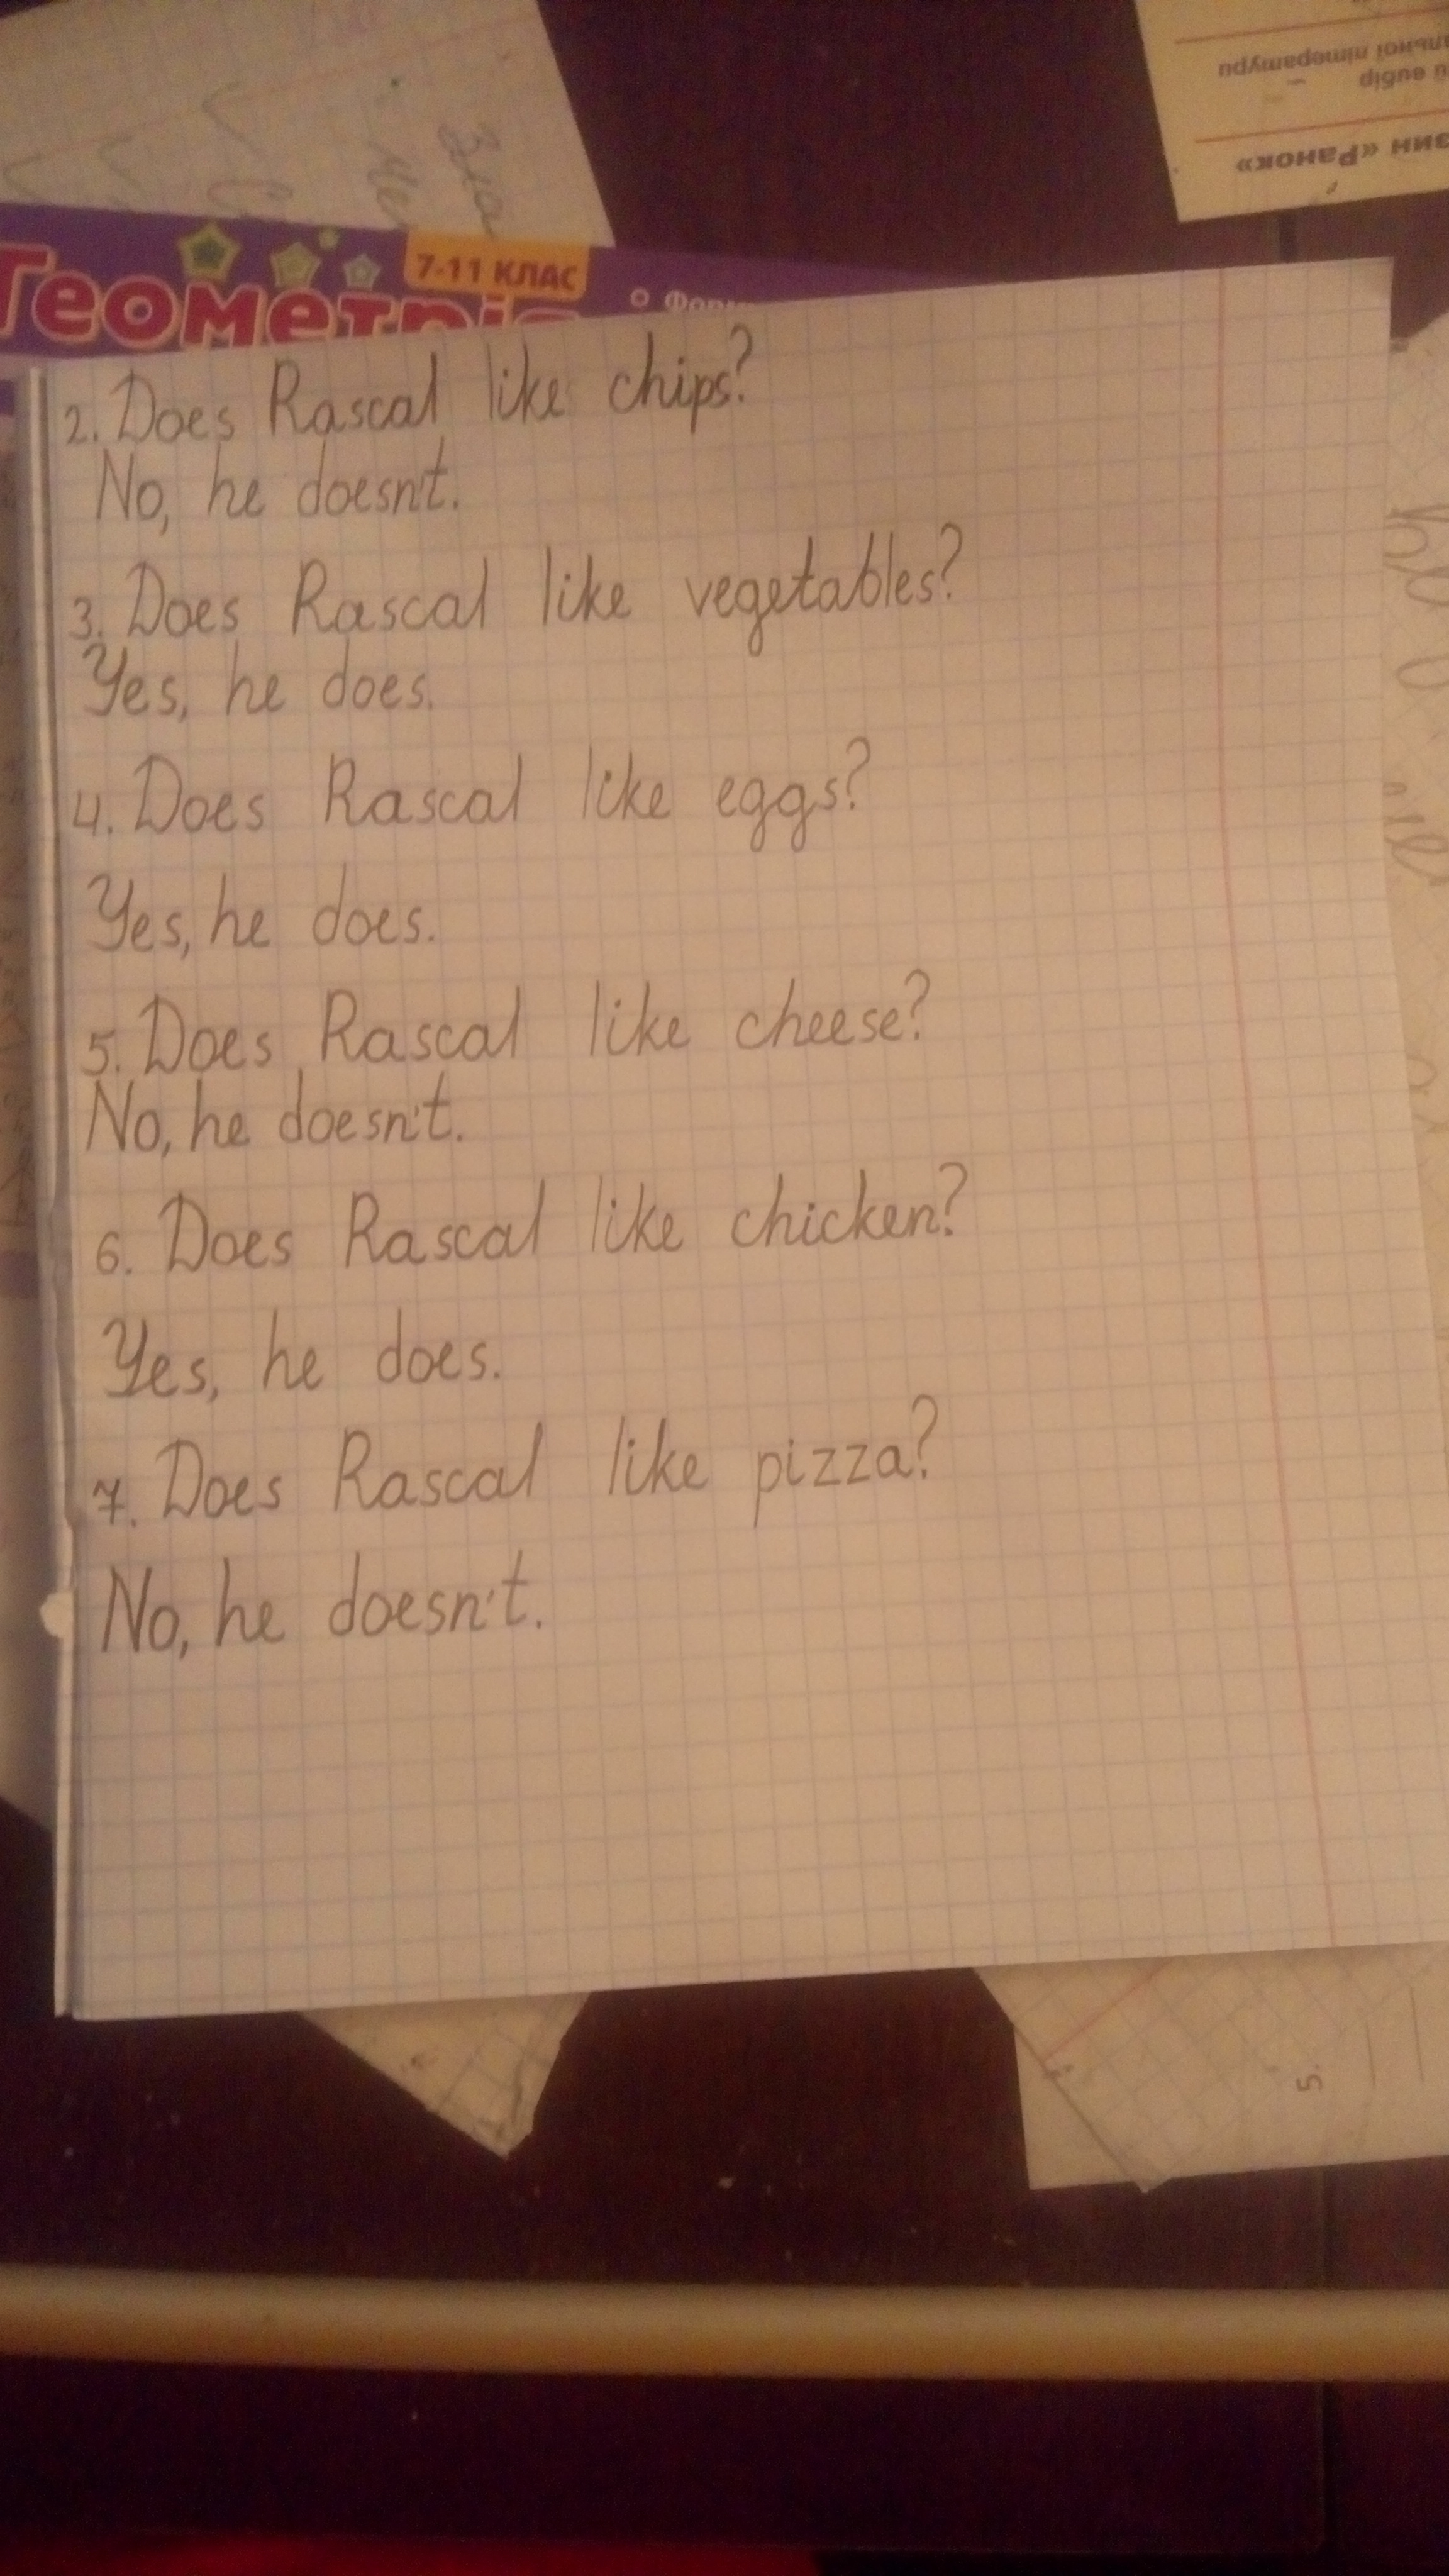 7-11 КЛАС
Геометрія
2. Does Rascal like chips?
No, he doesn't.
3. Does Rascal like vegetables?
Yes, he does.
4. Does Rascal like eggs?
Yes, he does.
5. Does Rascal like cheese?
No, he doesn't.
6. Does Rascal like chicken?
Yes, he does.
7. Does Rascal like pizza?
No, he doesn't.
й вибір
літератури
«Ранок»
5.